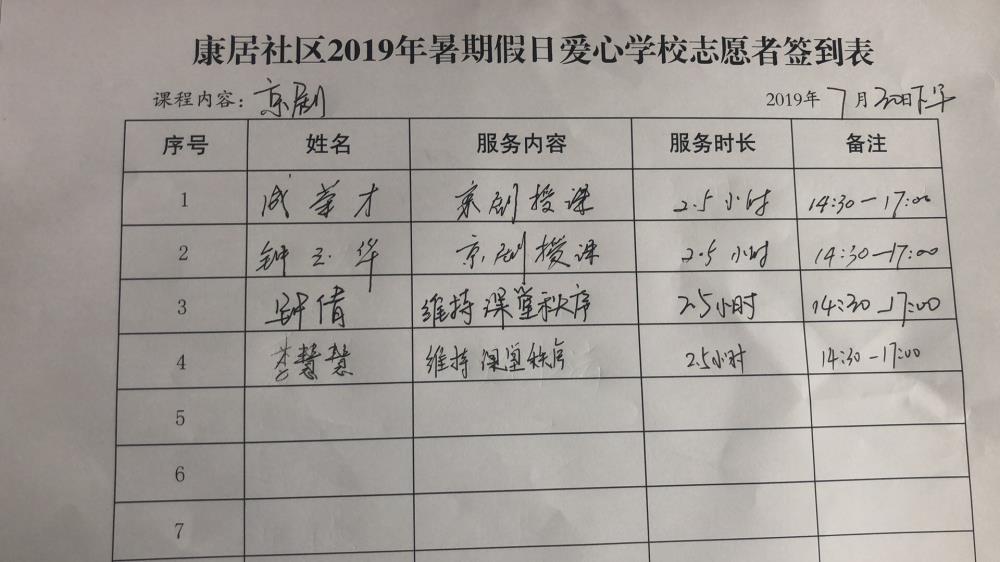 康居社区2019年暑期假日爱心学校志愿者签到表
课程内容：京剧 2019年7月30日下午
序号 姓名 服务内容 服务时长 备注
1 成荣才 京剧授课 2.5小时 14:30—17:00
2 钟玉华 京剧授课 2.5小时 14:30—17:00
3 倩 维持课堂秩序 2.5小时 14:30—17:00
4 李慧慧 维持课堂秩序 2.5小时 14:30—17:00
5
6
7